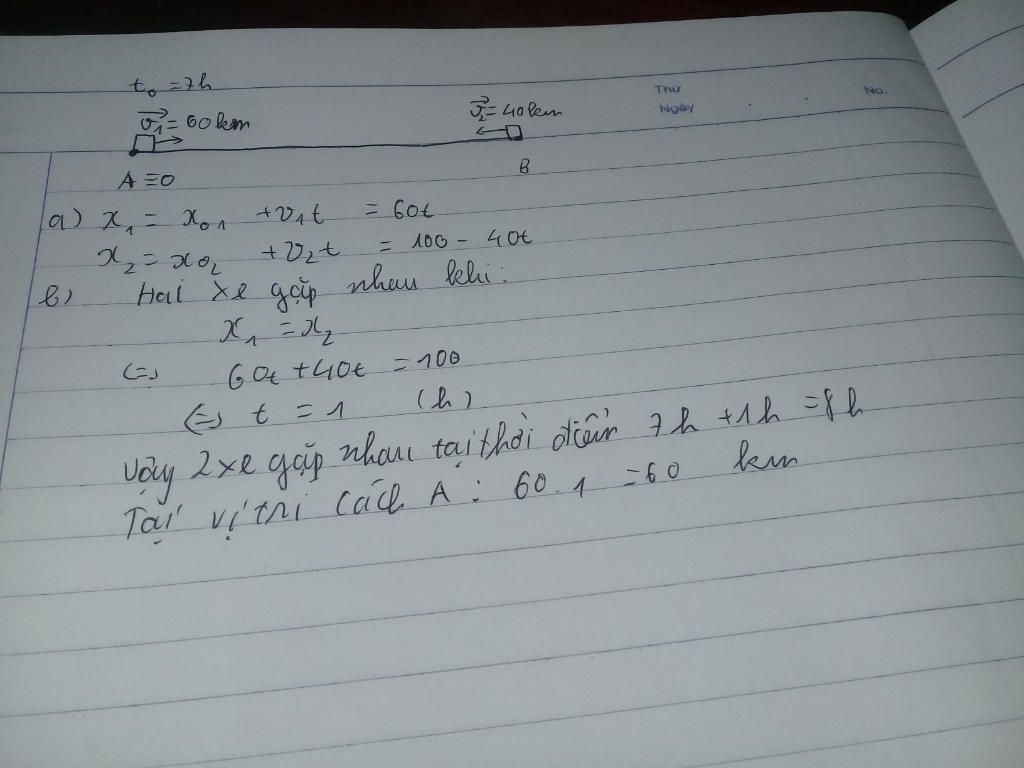 t₀ = 7h
Thứ
No.
Ngày
v₁ = 60km
v₂ = 40km
A ≡ O
B
a) x₁ = x₀₁ + v₁t = 60t
x₂ = x₀₂ + v₂t = 100 - 40t
b) Hai xe gặp nhau khi:
x₁ = x₂
<=> 60t + 40t = 100
<=> t = 1 (h)
Vậy 2 xe gặp nhau tại thời điểm 7h + 1h = 8h
Tại vị trí cách A : 60.1 = 60 km